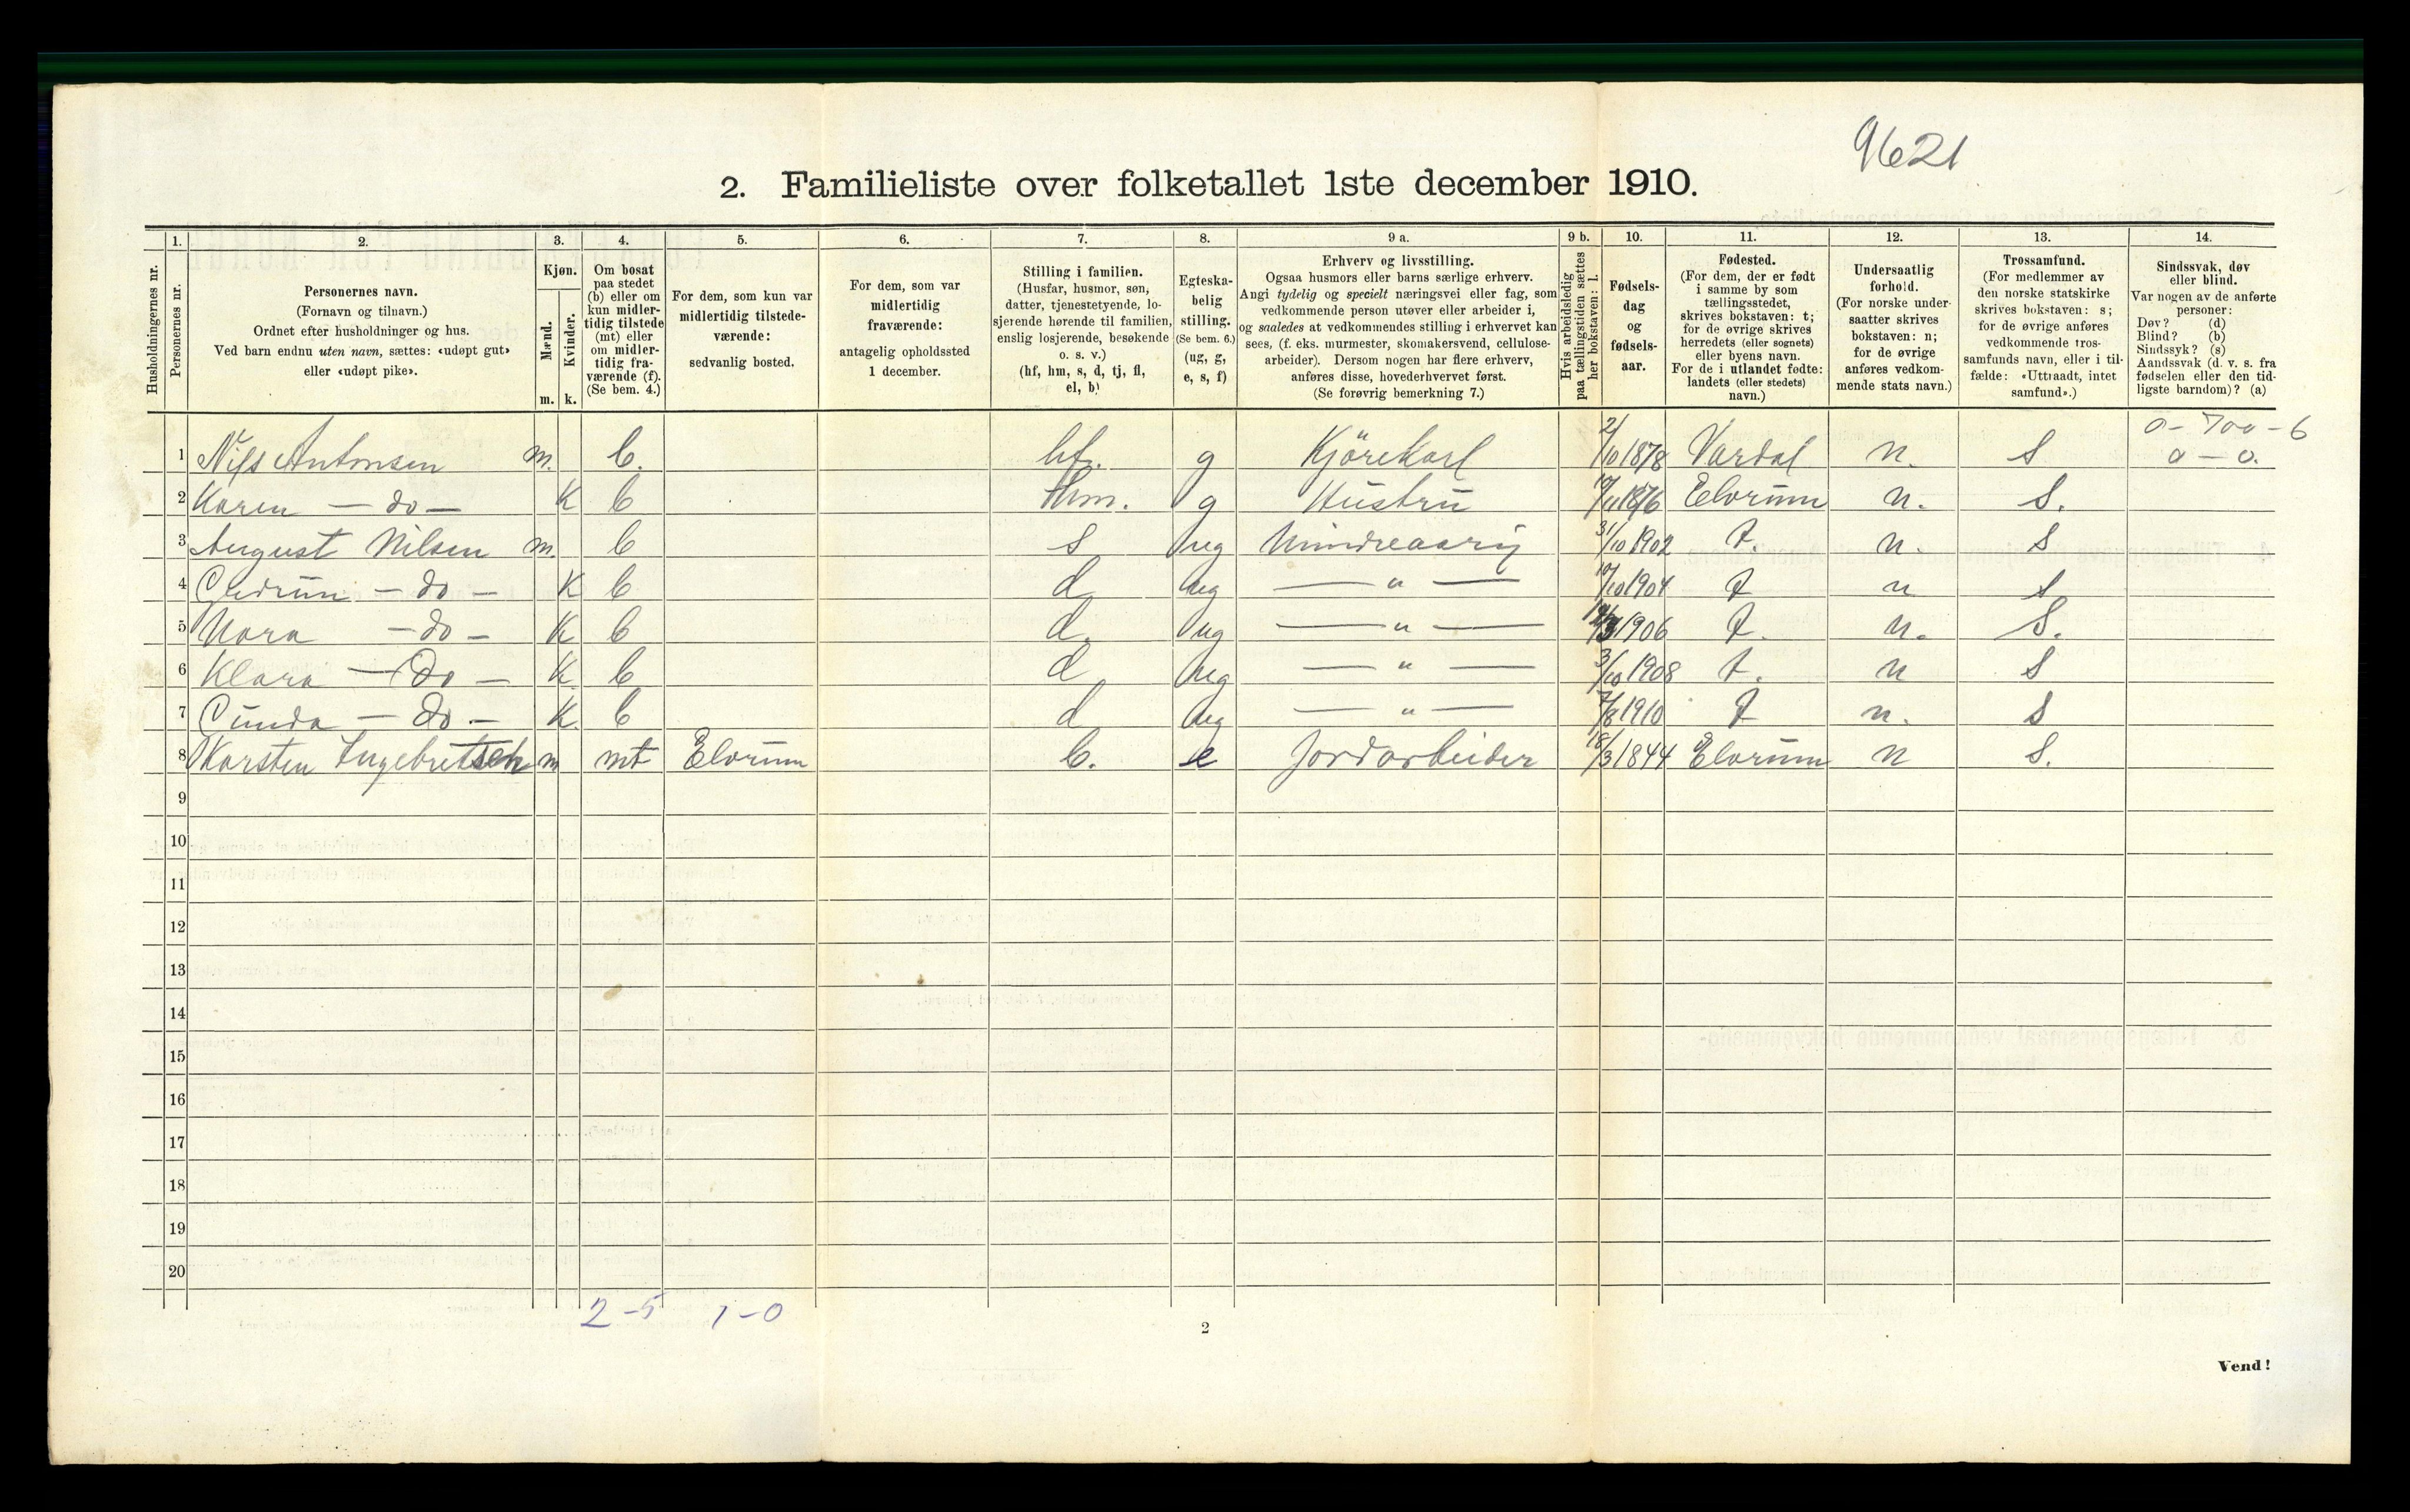 9621
2. Familieliste over folketallet 1ste december 1910.
1. 2. 3. 4. 5. 6. 7. 8. 9 a. 9 b. 10. 11. 12. 13. 14.
Husholdningernes nr.
Personernes nr.
Personernes navn.
(Fornavn og tilnavn.)
Ordnet efter husholdninger og hus.
Ved barn endnu uten navn, sættes: «udøpt gut»
eller «udøpt pike».
Kjøn.
Mænd.
Kvinder.
m. k.
Om bosat
paa stedet
(b) eller om
kun midler-
tidig tilstede
(mt) eller
om midler-
tidig fra-
værende (f).
(Se bem. 4.)
For dem, som kun var
midlertidig tilstede-
værende:
sedvanlig bosted.
For dem, som var
midlertidig
fraværende:
antagelig opholdssted
1 december.
Stilling i familien.
(Husfar, husmor, søn,
datter, tjenestetyende, lo-
sjerende hørende til familien,
enslig losjerende, besøkende
o. s. v.)
(hf, hm, s, d, tj, fl,
el, b)
Egteska-
belig
stilling.
(Se bem. 6.)
(ug, g,
e, s, f)
Erhverv og livsstilling.
Ogsaa husmors eller barns særlige erhverv.
Angi tydelig og specielt næringsvei eller fag, som
vedkommende person utøver eller arbeider i,
og saaledes at vedkommendes stilling i erhvervet kan
sees, (f. eks. murmester, skomakersvend, cellulose-
arbeider). Dersom nogen har flere erhverv,
anføres disse, hovederhvervet først.
(Se forøvrig bemerkning 7.)
Hvis arbeidsledig
paa tællingstiden sættes
her bokstaven: l.
Fødsels-
dag
og
fødsels-
aar.
Fødested.
(For dem, der er født
i samme by som
tællingsstedet,
skrives bokstaven: t;
for de øvrige skrives
herredets (eller sognets)
eller byens navn.
For de i utlandet fødte:
landets (eller stedets)
navn.)
Undersaatlig
forhold.
(For norske under-
saatter skrives
bokstaven: n;
for de øvrige
anføres vedkom-
mende stats navn.)
Trossamfund.
(For medlemmer av
den norske statskirke
skrives bokstaven: s;
for de øvrige anføres
vedkommende tros-
samfunds navn, eller i til-
fælde: «Uttraadt, intet
samfund».)
Sindssvak, døv
eller blind.
Var nogen av de anførte
personer:
Døv? (d)
Blind? (b)
Sindssyk? (s)
Aandssvak (d. v. s. fra
fødselen eller den tid-
ligste barndom)? (a)
0 - 700 - 6
1 Nils Antonsen m. b. hf. g Kjörekarl 2/10 1878 Vardal n. S 0 - 0.
2 Karen - do - K b Hm. g Hustru 1876 Elvrum n. S.
3 August Nilsen m. b s ug Mindreaarig 31/10 1902 t. n. S
4 Gudrun - do - K b d ug - " - 10/10 1904 t n S
5 Nora - do - K b d. ug - " - 1906 t. n. S.
6 Klara - Do - K b d ug - " - 3/10 1908 t. n S
7 Gunda - Do - K b d ug - " - 7/8 1910 t n. S
8 Karsten Ingebretsen m mt Elvrum b. e Jordarbeider 18/3 1844 Elvrum n S.
9
10
11
12
13
14
15
16
17
18
19
20
2-5 1-0
2
Vend!